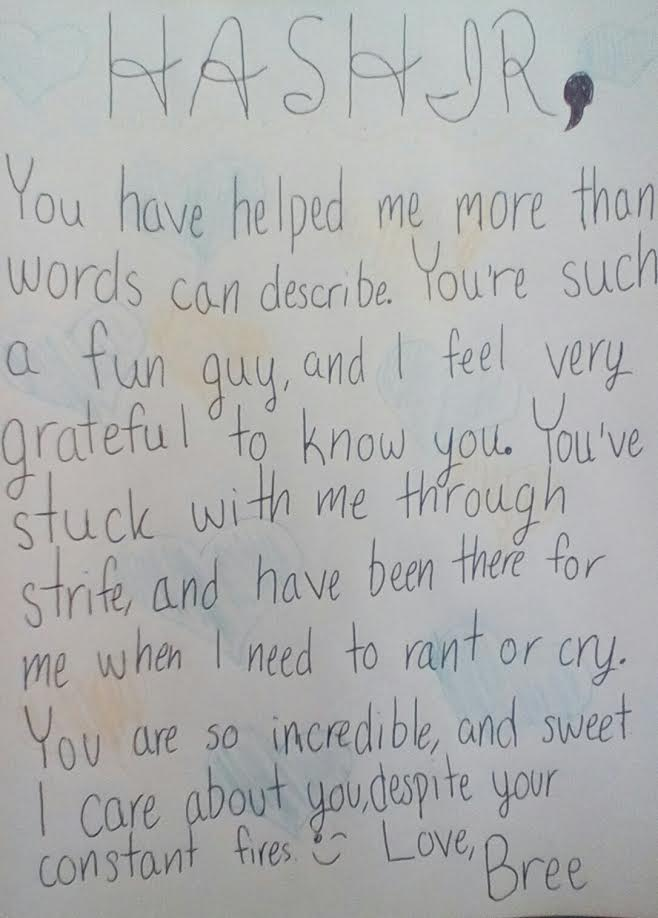 HASHIR,
You have helped me more than
words can describe. You're such
a fun guy, and I feel very
grateful to know you. You've
stuck with me through
strife, and have been there for
me when I need to rant or cry.
You are so incredible, and sweet
I care about you, despite your
constant fires. :) Love,
Bree